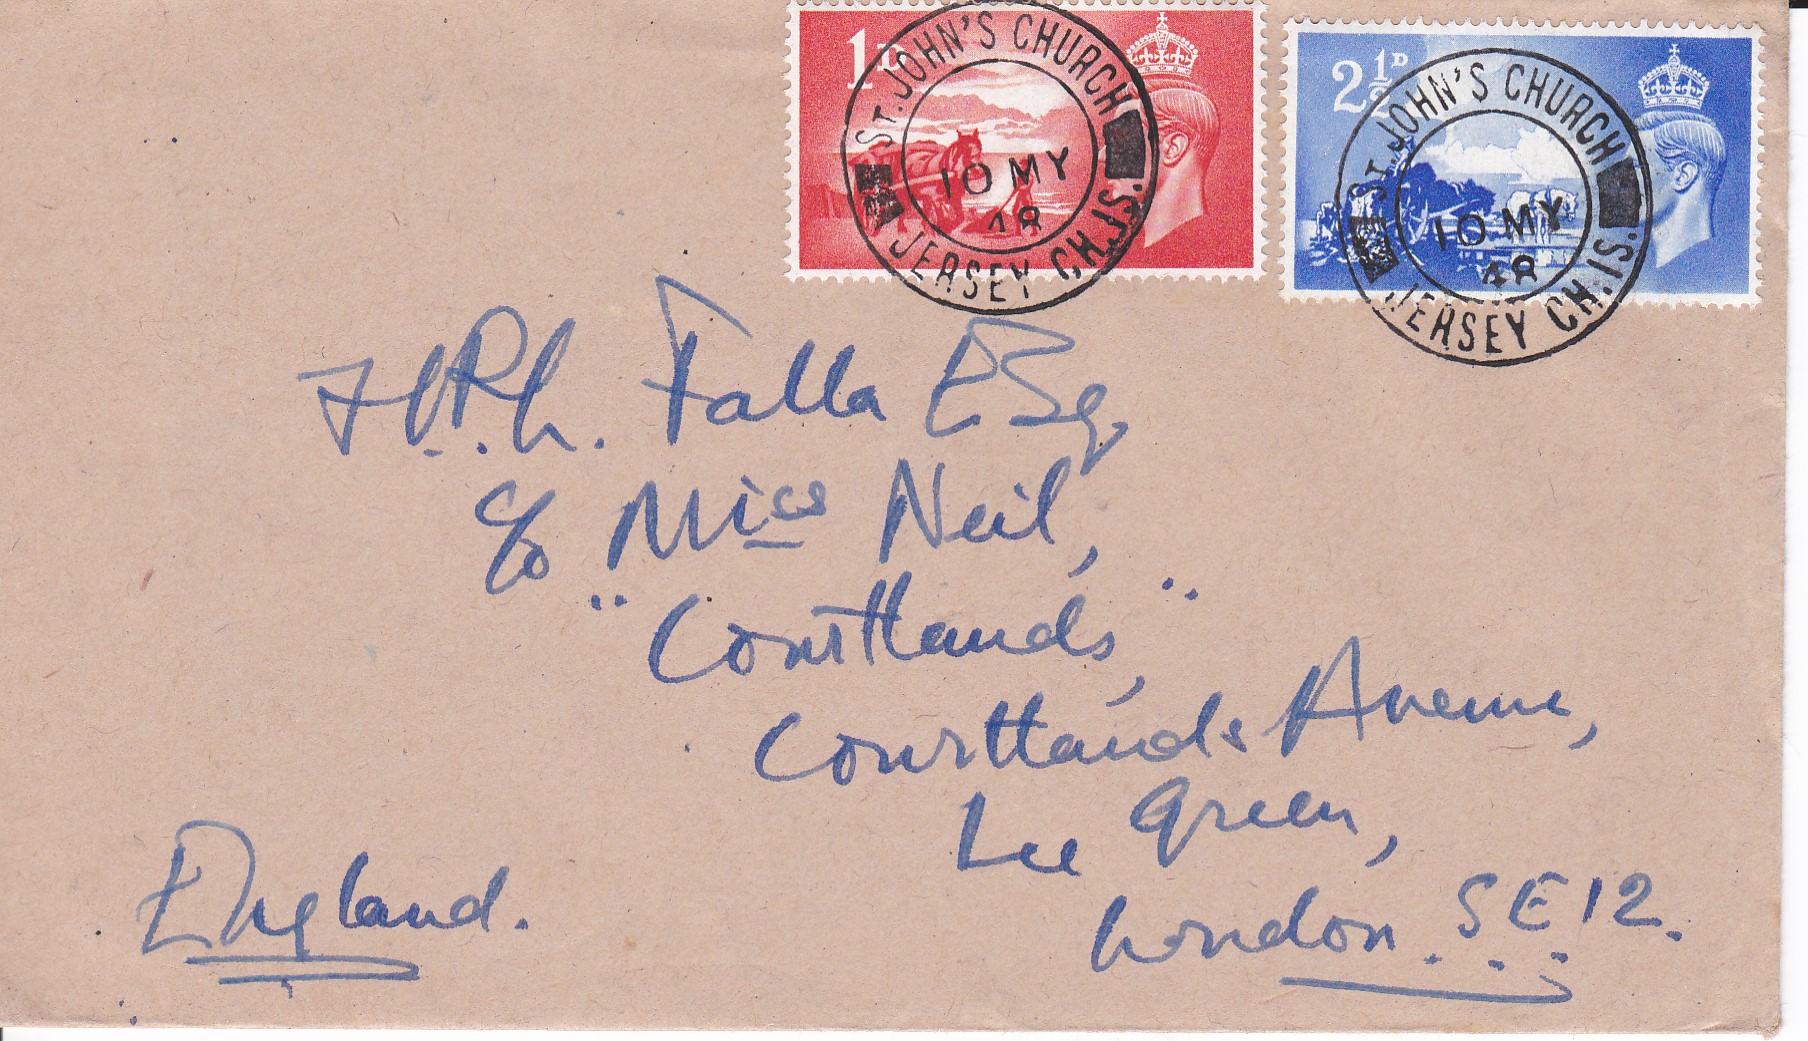 1D
ST. JOHN'S CHURCH
10 MY
48
JERSEY CH.IS.
2½D
ST. JOHN'S CHURCH
10 MY
48
JERSEY CH.IS.
Falla Esq,
c/o Miss Neil,
"Courtlands,"
Courtlands Avenue,
Lee Green,
London. S.E.12.
England.